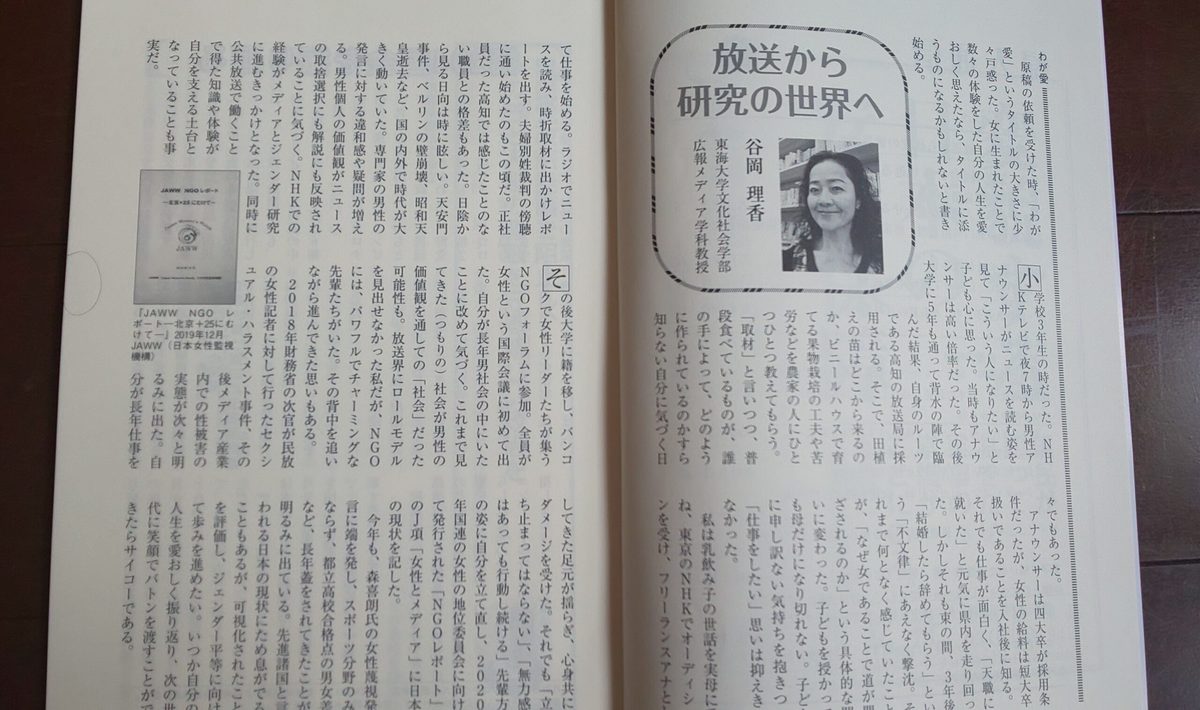 わが愛
原稿の依頼を受けた時、「わが
愛」というタイトルの大きさに少
々戸惑った。女に生まれたことで
数々の体験をした自分の人生を愛
おしく思えたなら、タイトルに添
うものになるかもしれないと書き
始める。
放送から
研究の世界へ
谷岡 理香
東海大学文化社会学部
広報メディア学科教授
小学校3年生の時だった。NH
Kテレビで夜7時から男性ア
ナウンサーがニュースを読む姿を
見て「こういう人になりたい」と
子ども心に思った。当時もアナウ
ンサーは高い倍率だった。その後
大学に5年も通って背水の陣で臨
んだ結果、自身のルーツ
である高知の放送局に採
用される。そこで、田植
えの苗はどこから来るの
か、ビニールハウスで育
てる果物栽培の工夫や苦
労などを農家の人にひと
つひとつ教えてもらう。
「取材」と言いつつ、普
段食べているものが、誰
の手によって、どのよう
に作られているのかすら
知らない自分に気づく日
々でもあった。
アナウンサーは四大卒が採用条
件だったが、女性の給料は短大卒
扱いであることを入社後に知る。
それでも仕事が面白く、「天職に
就いた」と元気に県内を走り回っ
た。しかしそれも束の間、3年後
「結婚したら辞めてもらう」とい
う「不文律」にあえなく撃沈。そ
れまで何となく感じていたこと
が、「なぜ女であることで道が閉
ざされるのか」という具体的な問
いに変わった。子どもを授かって
も母だけになり切れない。子ども
に申し訳ない気持ちを抱きつつ
「仕事をしたい」思いは抑えき
なかった。
私は乳飲み子の世話を実母に
ね、東京のNHKでオーディシ
ンを受け、フリーランスアナと
て仕事を始める。ラジオでニュー
スを読み、時折取材に出かけレポ
ートを出す。夫婦別姓裁判の傍聴
に通い始めたのもこの頃だ。正社
員だった高知では感じたことのな
い職員との格差もあった。日陰か
ら見る日向は時に眩しい。天安門
事件、ベルリンの壁崩壊、昭和天
皇逝去など、国の内外で時代が大
きく動いていた。専門家の男性の
発言に対する違和感や疑問が増え
る。男性個人の価値観がニュース
の取捨選択にも解説にも反映され
ていることに気づく。NHKでの
経験がメディアとジェンダー研究
に進むきっかけとなった。同時に
公共放送で働くこと
で得た知識や体験が
自分を支える土台と
なっていることも事
実だ。
JAWW NGO レポート
JAWW
「JAWW NGO レ
ポート―北京+25にむ
けて―」2019年12月
JAWW(日本女性監視
機構)
その後大学に籍を移し、バンコ
クで女性リーダーたちが集う
NGOフォーラムに参加。全員が
女性という国際会議に初めて出
た。自分が長年男社会の中にいた
ことに改めて気づく。これまで見
てきた(つもりの)社会が男性の
価値観を通しての「社会」だった
可能性も。放送界にロールモデル
を見出せなかった私だが、NGO
には、パワフルでチャーミングな
先輩たちがいた。その背中を追い
ながら進んできた思いもある。
2018年財務省の次官が民放
の女性記者に対して行ったセクシ
ュアル・ハラスメント事件、その
後メディア産業
内での性被害の
実態が次々と明
るみに出た。自
分が長年仕事を
してきた足元が揺らぎ、心身共に
ダメージを受けた。それでも「立
ち止まってはならない」、「無力感
はあっても行動し続ける」先輩方
の姿に自分を立て直し、2020
年国連の女性の地位委員会に向け
て発行された「NGOレポート」
のJ項「女性とメディア」に日本
の現状を記した。
今年も、森喜朗氏の女性蔑視発
言に端を発し、スポーツ分野のみ
ならず、都立高校合格点の男女差
など、長年蓋をされてきたことが
明るみに出ている。先進諸国と言
われる日本の現状にため息がでる
こともあるが、可視化されたこと
を評価し、ジェンダー平等に向け
て歩みを進めたい。いつか自分の
人生を愛おしく振り返り、次の世
代に笑顔でバトンを渡すことがで
きたらサイコーである。